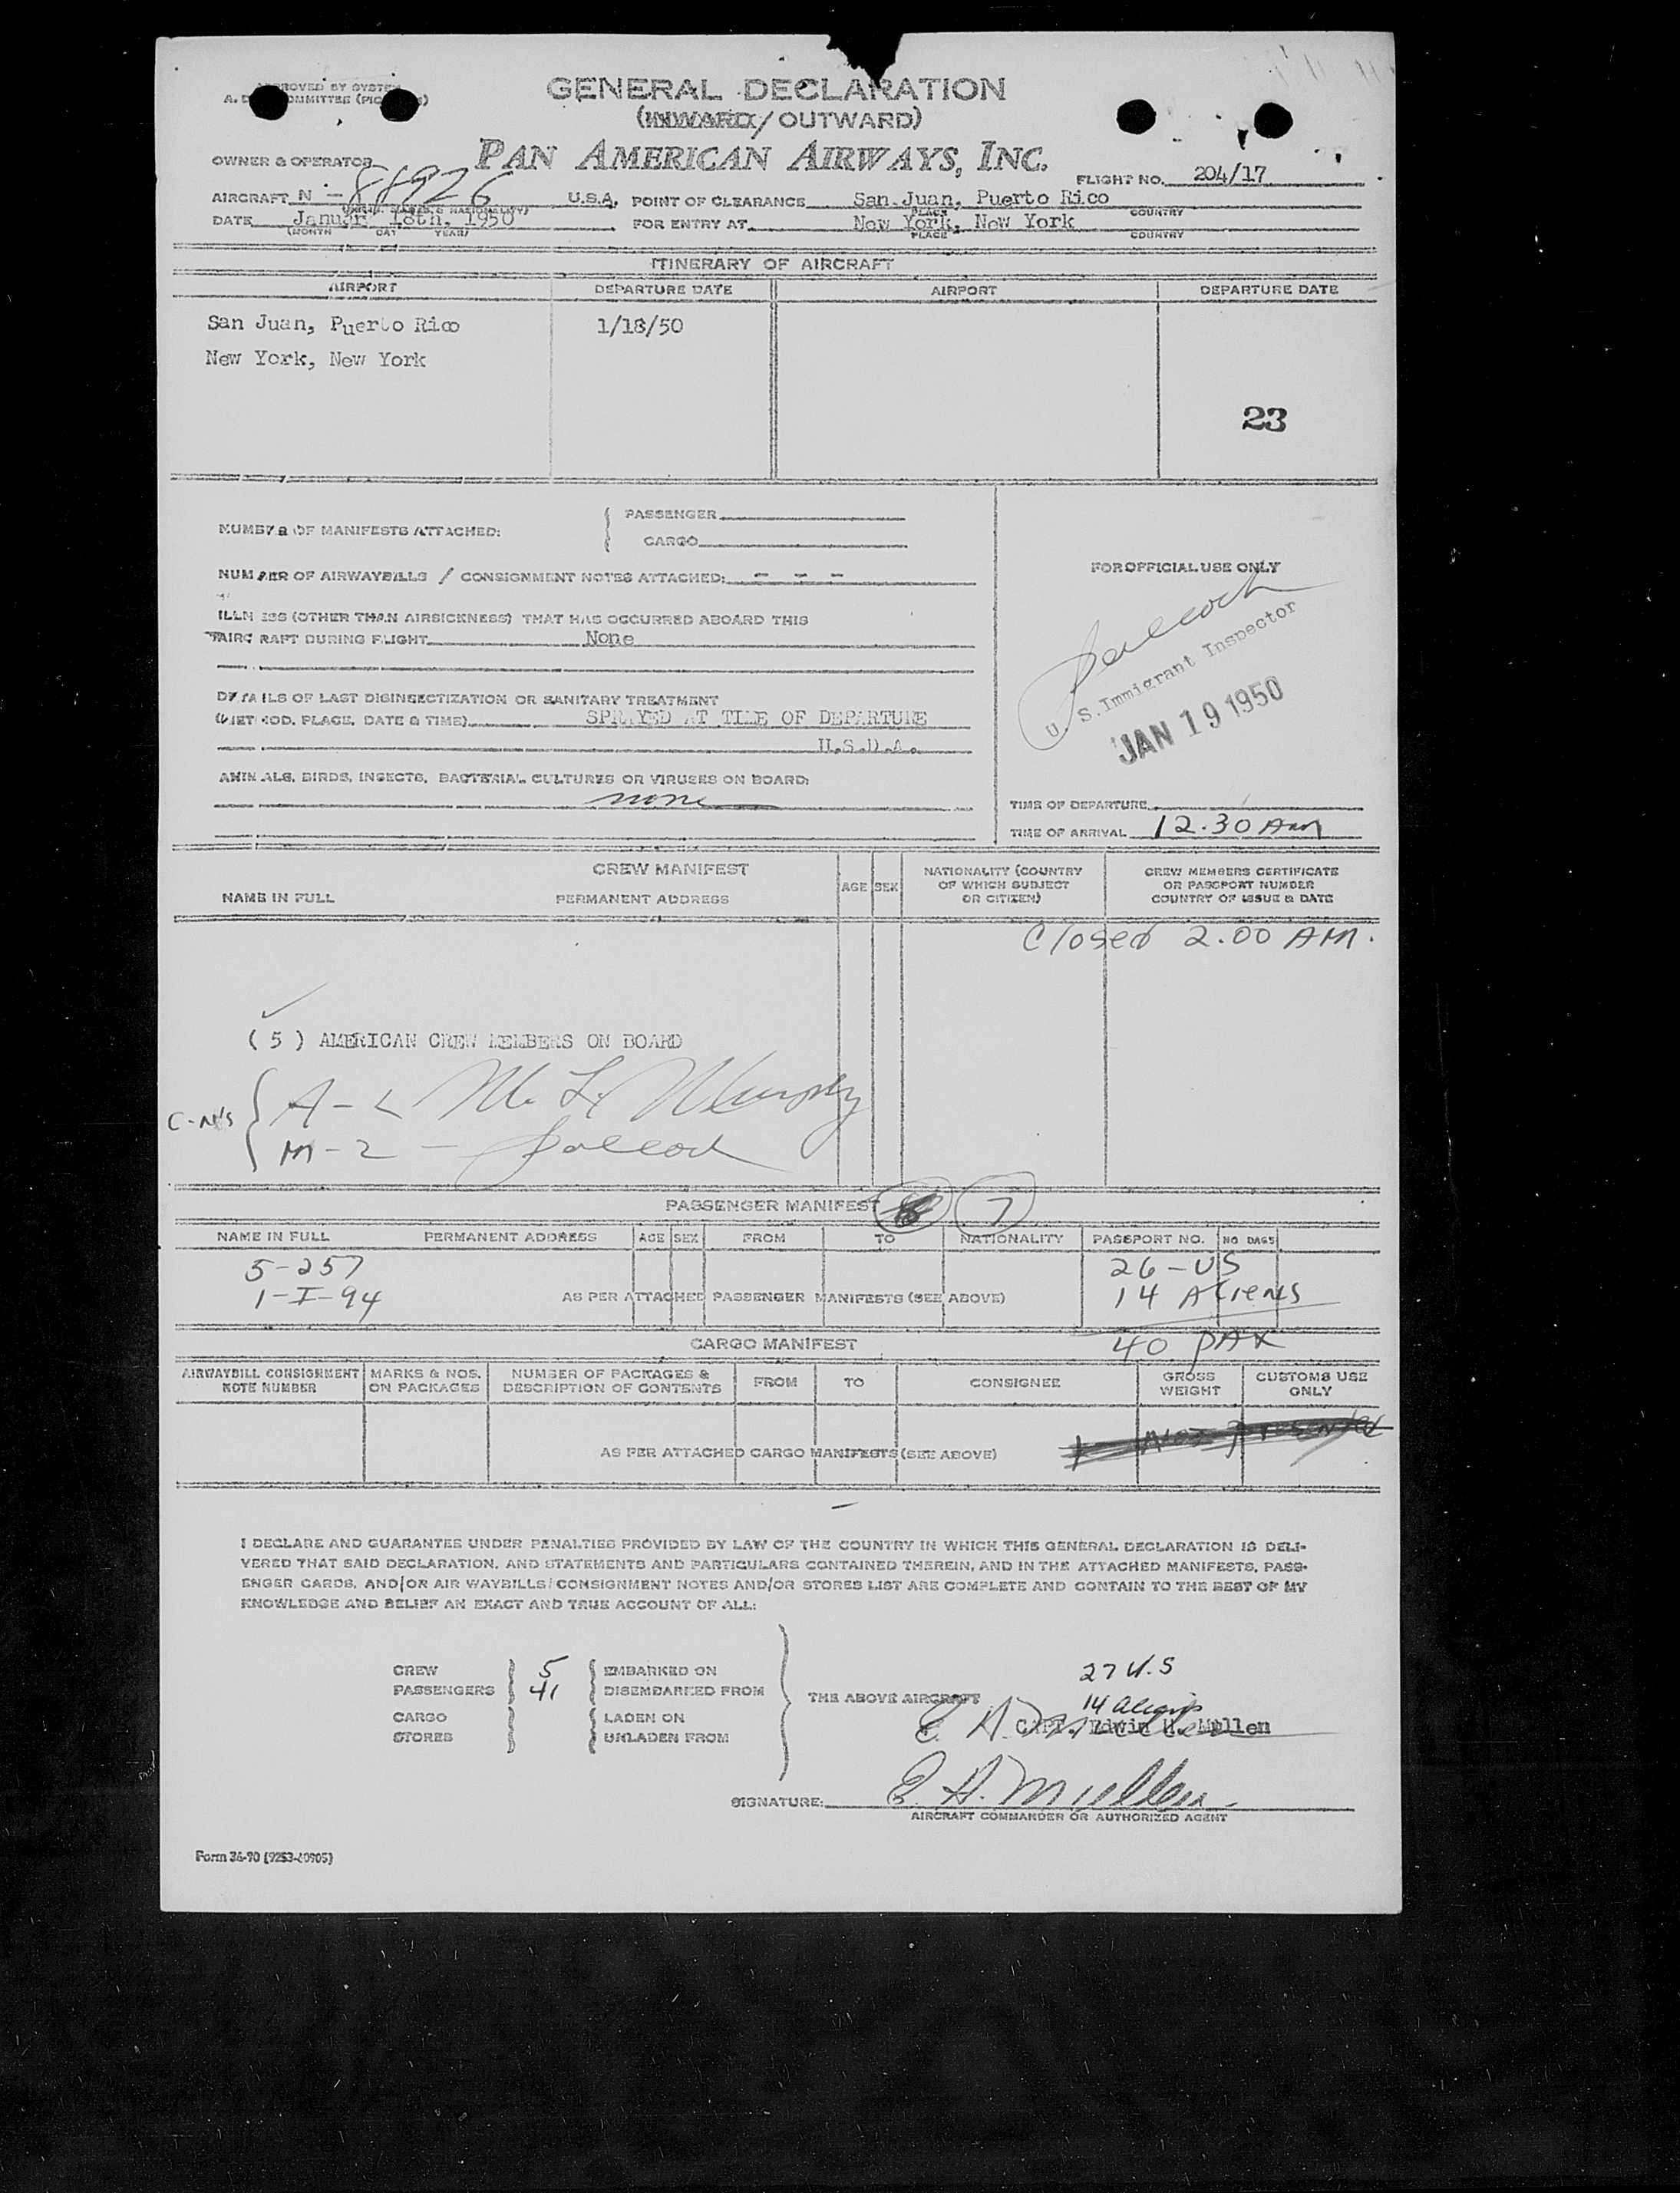 GENERAL DECLARATION
(INWARD / OUTWARD)
PAN AMERICAN AIRWAYS, INC.
OWNER & OPERATOR
FLIGHT NO. 204/17
AIRCRAFT N - 88926 U.S.A. POINT OF CLEARANCE San Juan, Puerto Rico
PLACE COUNTRY
DATE Januar 18th, 1950 FOR ENTRY AT New York, New York
(MONTH DAY YEAR) PLACE COUNTRY
ITINERARY OF AIRCRAFT
AIRPORT DEPARTURE DATE AIRPORT DEPARTURE DATE
San Juan, Puerto Rico 1/18/50
New York, New York
23
NUMBER OF MANIFESTS ATTACHED:
PASSENGER
CARGO
NUMBER OF AIRWAYBILLS / CONSIGNMENT NOTES ATTACHED: - - -
ILLNESS (OTHER THAN AIRSICKNESS) THAT HAS OCCURRED ABOARD THIS
AIRCRAFT DURING FLIGHT None
DETAILS OF LAST DISINSECTIZATION OR SANITARY TREATMENT
(METHOD, PLACE, DATE & TIME) SPRAYED AT TIME OF DEPARTURE
U.S.D.A.
ANIMALS, BIRDS, INSECTS, BACTERIAL CULTURES OR VIRUSES ON BOARD:
none
FOR OFFICIAL USE ONLY
U. S. Immigrant Inspector
JAN 19 1950
TIME OF DEPARTURE
TIME OF ARRIVAL 12.30 AM
CREW MANIFEST
NAME IN FULL PERMANENT ADDRESS AGE SEX NATIONALITY (COUNTRY OF WHICH SUBJECT OR CITIZEN) CREW MEMBERS CERTIFICATE OR PASSPORT NUMBER COUNTRY OF ISSUE & DATE
Closed 2.00 AM.
(5) AMERICAN CREW MEMBERS ON BOARD
C-N's
A-L M. L. Murphy
M-2 -
PASSENGER MANIFEST 7
NAME IN FULL PERMANENT ADDRESS AGE SEX FROM TO NATIONALITY PASSPORT NO. NO BAGS
5-257 26-US
1-I-94 AS PER ATTACHED PASSENGER MANIFESTS (SEE ABOVE) 14 Aliens
40 PAX
CARGO MANIFEST
AIRWAYBILL CONSIGNMENT NOTE NUMBER MARKS & NOS. ON PACKAGES NUMBER OF PACKAGES & DESCRIPTION OF CONTENTS FROM TO CONSIGNEE GROSS WEIGHT CUSTOMS USE ONLY
AS PER ATTACHED CARGO MANIFESTS (SEE ABOVE)
I DECLARE AND GUARANTEE UNDER PENALTIES PROVIDED BY LAW OF THE COUNTRY IN WHICH THIS GENERAL DECLARATION IS DELI-
VERED THAT SAID DECLARATION, AND STATEMENTS AND PARTICULARS CONTAINED THEREIN, AND IN THE ATTACHED MANIFESTS, PASS-
ENGER CARDS, AND/OR AIR WAYBILLS/CONSIGNMENT NOTES AND/OR STORES LIST ARE COMPLETE AND CONTAIN TO THE BEST OF MY
KNOWLEDGE AND BELIEF AN EXACT AND TRUE ACCOUNT OF ALL:
CREW 5 EMBARKED ON
PASSENGERS 41 DISEMBARKED FROM
CARGO LADEN ON
STORES UNLADEN FROM
THE ABOVE AIRCRAFT
27 U.S
14 aliens
CAPT. Edwin H. Mullen
SIGNATURE: E. H. Mullen
AIRCRAFT COMMANDER OR AUTHORIZED AGENT
Form 36-90 (9253-40905)